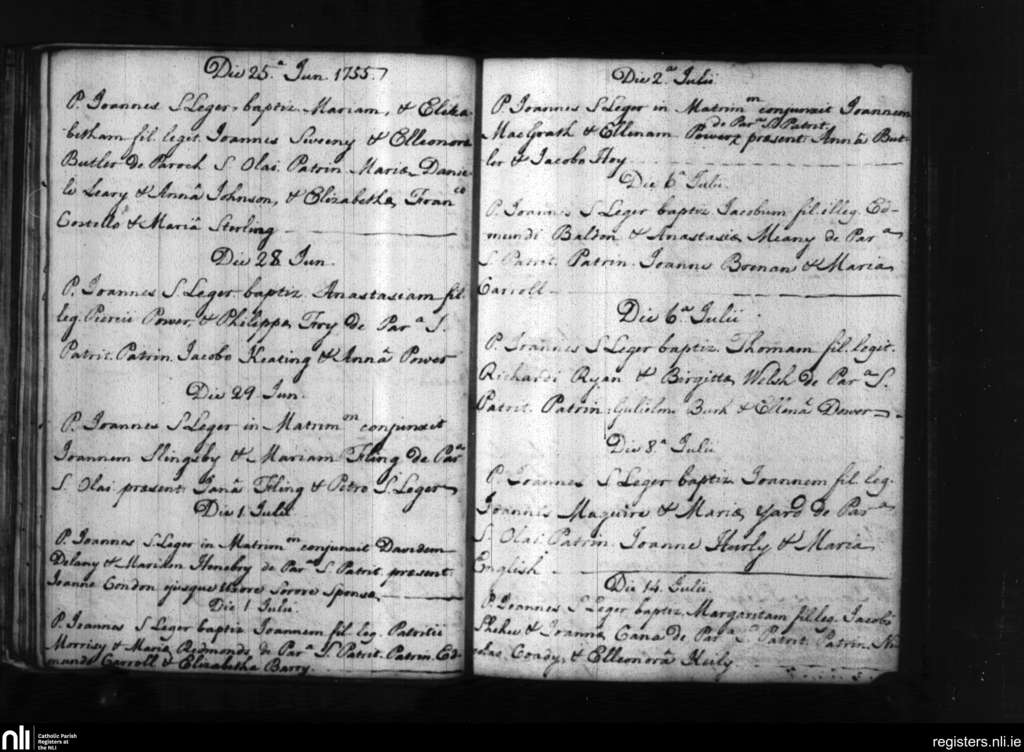 Die 25.ª Jun. 1755.
P. Joannes S.Leger baptiz. Mariam, & Eliza-
betham fil. legit. Joannis Sweeny & Elleonora
Butler de Paroch S. Olai. Patrin. Mariæ, Danie-
le Leary & Annâ Johnson, & Elizabethæ, Fran.co
Costello & Mariâ Sterling
Die 28 Jun.
P. Joannes S.Leger baptiz. Anastasiam fil.
leg. Piercii Power, & Philippæ Troy de Par.ª S.
Patrit. Patrin. Jacobo Keating & Annâ Power
Die 29 Jun.
P. Joannes S.Leger in Matrim.on conjunxit
Joannem Slingsby & Mariam Fling de Par.ª
S. Olai præsent. Janâ Fling & Petro S.Leger
Die 1. Julii
P. Joannes S.Leger in Matrim.on conjunxit Davidem
Delany & Mariam Henebry de Par.ª S. Patrit. præsent.
Joanne Condon ejusque Uxore Sorore Sponsæ
Die 1 Julii.
P. Joannes S.Leger baptiz. Joannem fil. leg. Patritii
Morrisy & Mariæ Redmonds de Par.ª S. Patrit. Patrin. Ed-
mundo Carroll & Elizabetha Barry.
Die 2.ª Julii
P. Joannes S.Leger in Matrim.on conjunxit Joannem
de Par.ª S. Patrit.
MacGrath & Ellenam Power præsent. Annâ But-
ler & Jacobo
Die 6.ª Julii
P. Joannes S.Leger baptiz. Jacobum fil. illeg. Ed-
mundi Baldon & Anastasiæ Meany de Par.ª
S. Patrit. Patrin. Joanne Brenan & Maria
Carroll
Die 6.ª Julii
P. Joannes S.Leger baptiz. Thomam fil. legit.
Richardi Ryan & Birgittæ Welsh de Par.ª S.
Patrit. Patrin. Gulielmo Burk & Ellenâ Dower
Die 8.ª Julii
P. Joannes S.Leger baptiz. Joannem fil. leg.
Joannis Maguire & Mariæ Yard de Par.ª
S. Olai Patrin. Joanne Hurly & Maria
English
Die 14. Julii.
P. Joannes S.Leger baptiz. Margaritam fil. leg. Jacobi
Shehee & Joannæ Cana de Par.ª S. Patrit. Patrin. Ni-
colas Coady, & Elleonorâ Kiily
nli
Catholic Parish
Registers at
the NLI
registers.nli.ie